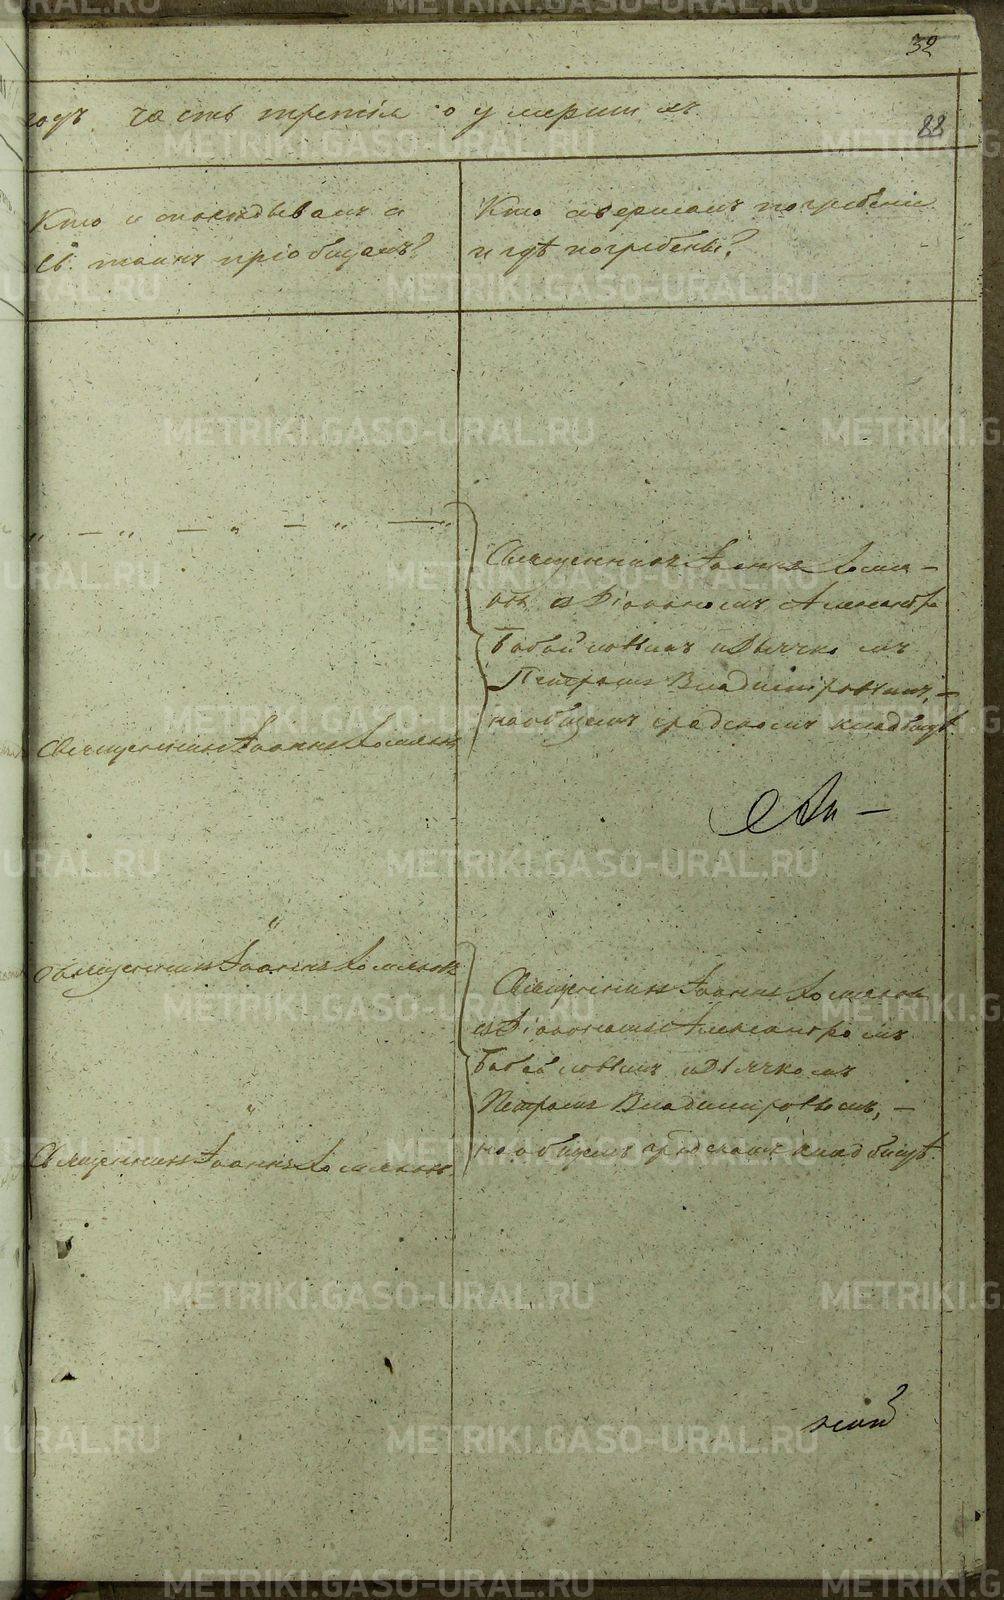 32
годъ часть третія о умершихъ
88
Кто исповѣдывалъ и
Св. таинъ пріобщалъ?
Кто совершалъ погребеніе
и гдѣ погребены?
„ — „ — „ — „ — „
Священникъ Іоаннъ Хомя-
ковъ съ Діакономъ Александро
Бабайловымъ и Дьячкомъ
Петромъ Владимировымъ, —
на общемъ градскомъ кладбищѣ
Священникъ Іоаннъ Хомяковъ
„
Священникъ Іоаннъ Хомяковъ
Священникъ Іоаннъ Хомяковъ
съ Діакономъ Александромъ
Бабайловымъ и Дьячкомъ
Петромъ Владимировымъ, —
на общемъ градскомъ кладбищѣ.
„
Священникъ Іоаннъ Хомяковъ
METRIKI.GASO-URAL.RU